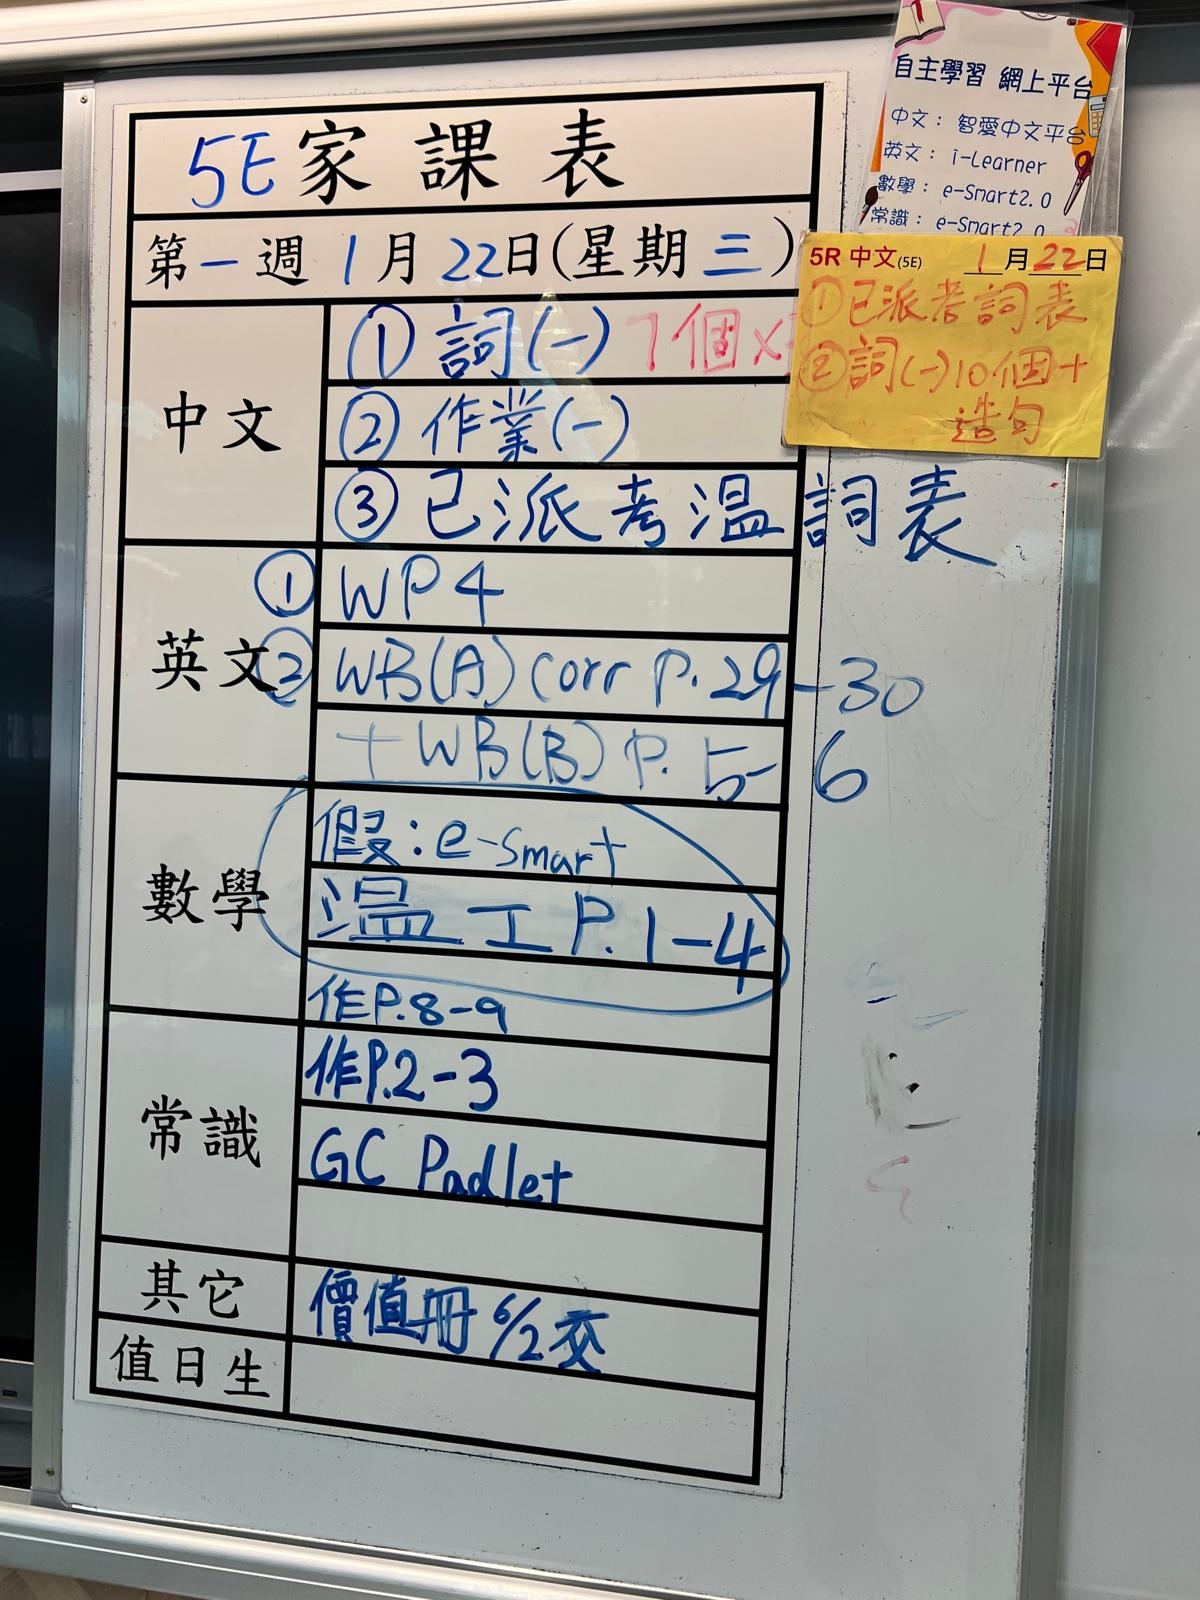 5E家課表
第一週 1月22日(星期三)
中文
① 詞(一) 7個x
② 作業(一)
③ 已派考溫詞表
英文
① WP4
② WB(A) corr P.29-30
+WB(B) P.5-6
數學
假:e-smart
溫工P.1-4
作P.8-9
常識
作P.2-3
GC Padlet
其它
價值冊 6/2交
值日生
自主學習 網上平台
中文: 智愛中文平台
英文: i-Learner
數學: e-Smart2.0
常識: e-Smart2.0
5R 中文(5E) 1月22日
①已派考詞表
②詞(一)10個+
造句